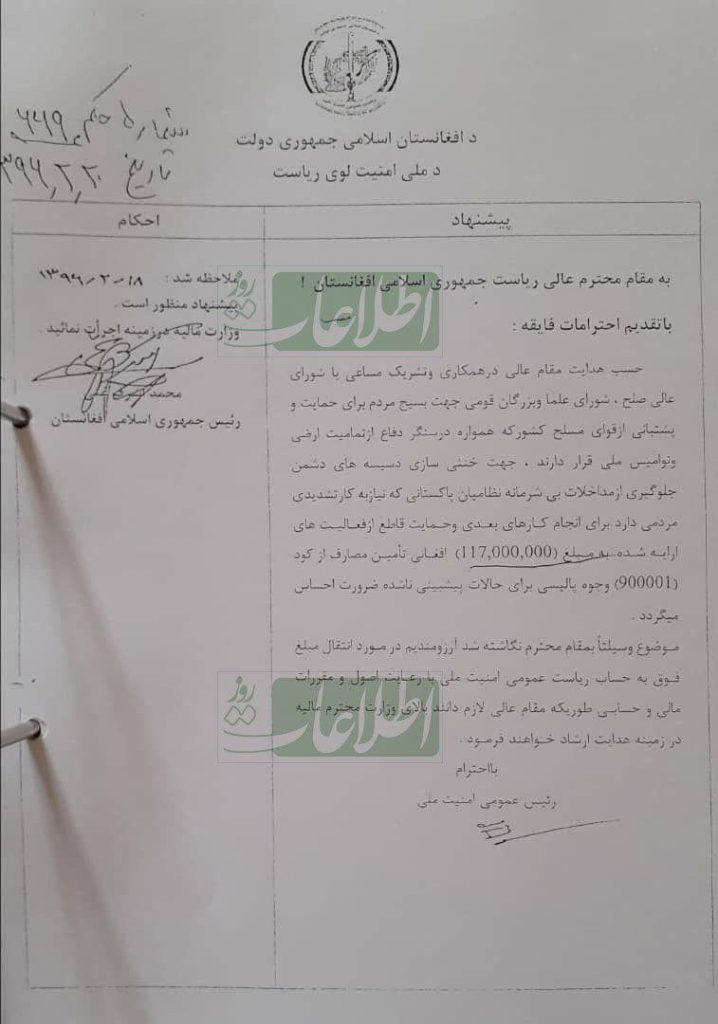 شماره حکم ۶۴۹
تاریخ ۱۳۹۶/۲/۲۰
د افغانستان اسلامی جمهوری دولت
د ملی امنیت لوی ریاست
پیشنهاد
احکام
به مقام محترم عالی ریاست جمهوری اسلامی افغانستان !
باتقدیم احترامات فایقه :
حسب هدایت مقام عالی درهمکاری وتشریک مساعی با شورای
عالی صلح ، شورای علما وبزرگان قومی جهت بسیج مردم برای حمایت و
پشتبانی ازقوای مسلح کشورکه همواره درسنگر دفاع ازتمامیت ارضی
ونوامیس ملی قرار دارند ، جهت خنثی سازی دسیسه های دشمن
جلوگیری ازمداخلات بی شرمانه نظامیان پاکستانی که نیازبه کارتشدیدی
مردمی دارد برای انجام کارهای بعدی وحمایت قاطع ازفعالیت های
ارایه شده به مبلغ (117,000,000) افغانی تأمین مصارف از کود
(900001) وجوه پالیسی برای حالات پیشبینی ناشده ضرورت احساس
میگردد .
موضوع وسیلتاً بمقام محترم نگاشته شد آرزومندیم در مورد انتقال مبلغ
فوق به حساب ریاست عمومی امنیت ملی با رعایت اصول و مقررات
مالی و حسابی طوریکه مقام عالی لازم دانند بالای وزارت محترم مالیه
در زمینه هدایت ارشاد خواهند فرمود .
بااحترام
رئیس عمومی امنیت ملی
ملاحظه شد : ۱۳۹۶/۲/۱۸
پیشنهاد منظور است .
وزارت مالیه درزمینه اجرأت نمائید .
محمد
رئیس جمهوری اسلامی افغانستان
اطلاعات روز
اطلاعات روز